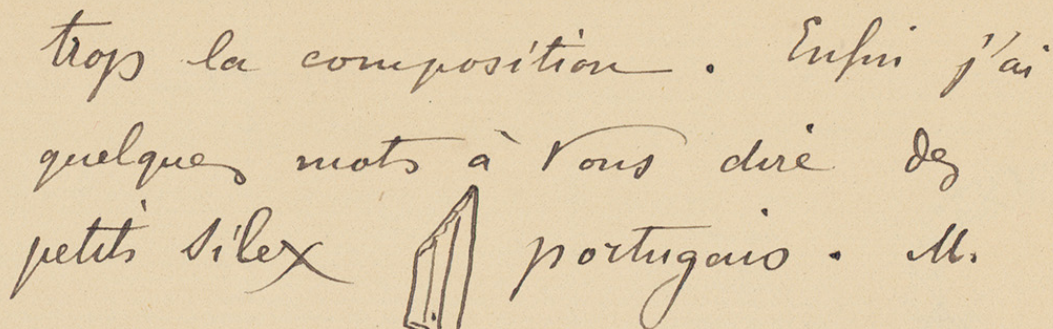 trop la composition. Enfin j'ai
quelques mots à Vous dire des
petits silex portugais. M.